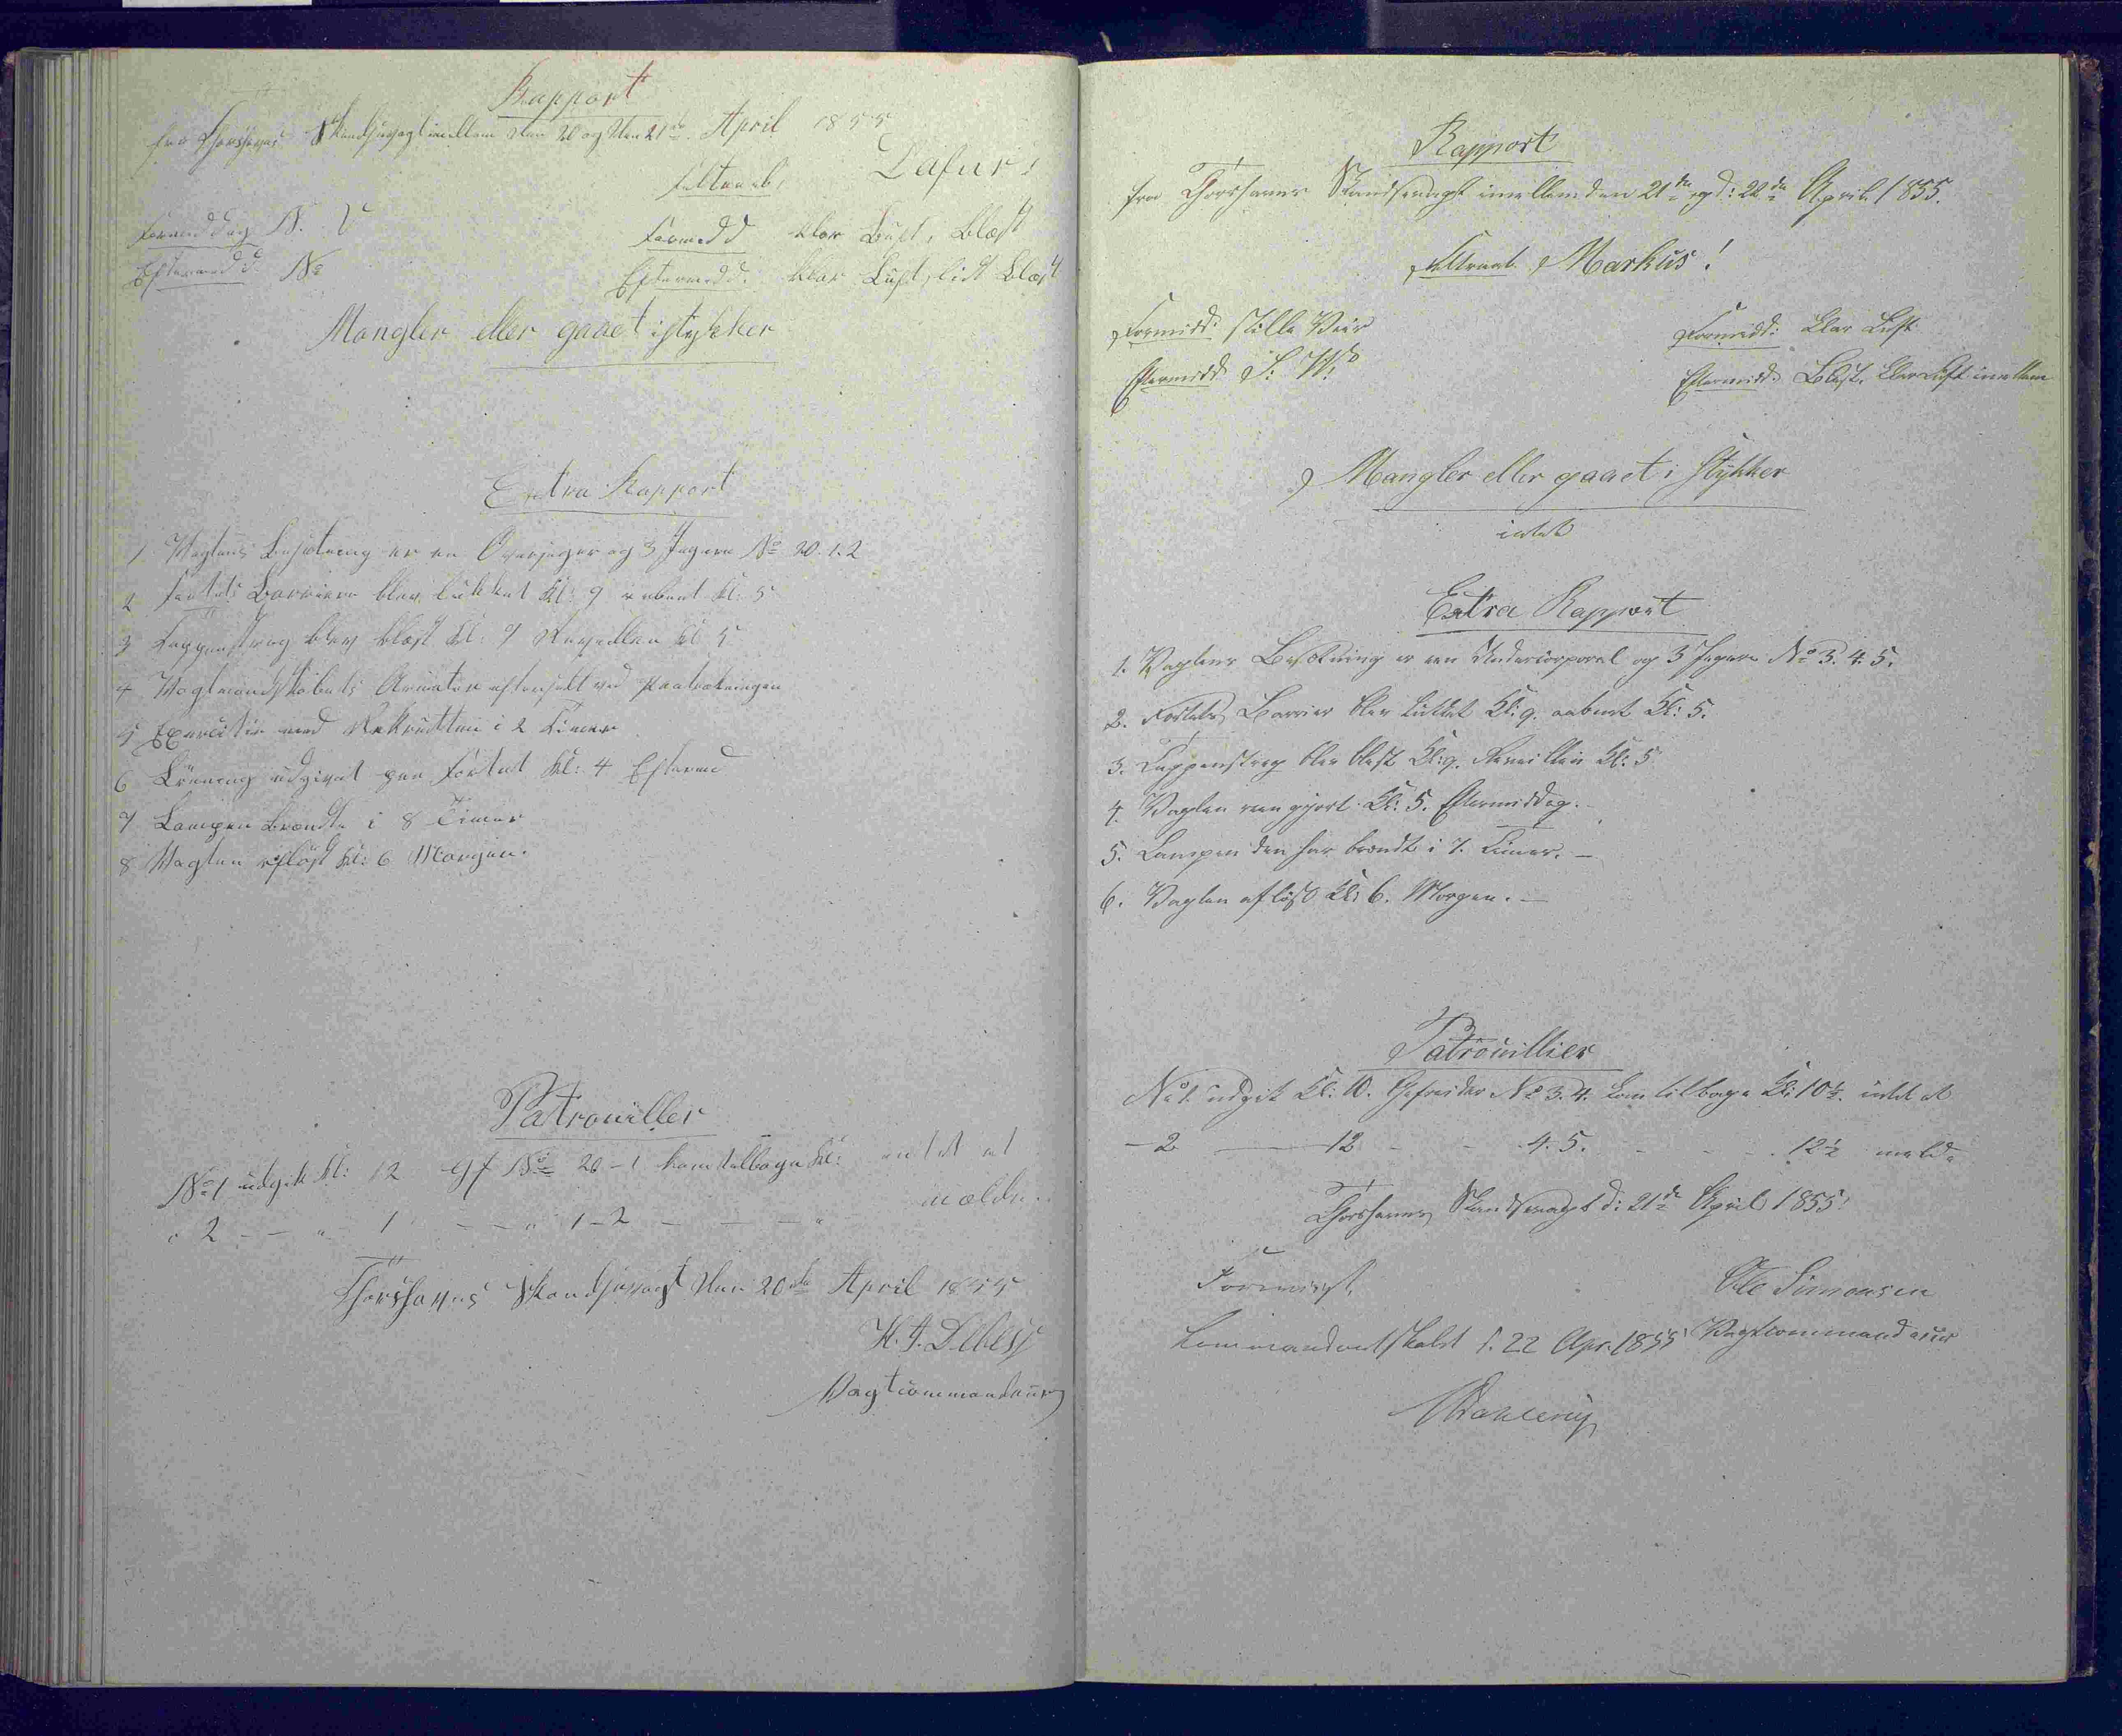 Rapport
fra Thorshavns Skandsevagt imellem den 20 og den 21de April 1855
Feltraab, Dafur!
Formiddag N. V
Formidd klar Luft, Blæst
Eftermidd. No
Eftermidd. klar Luft, lidt Blæst
Mangler eller gaaet istykker
Extra Rapport
1 Vagtens Besætning er en Overjæger og 3 Jægere No 20. 1. 2
2 Fortets Barriere blev lukket Kl: 9 aabnet Kl: 5
3 Tappenstreg blev blæst Kl: 9 Revellen Kl 5
4 Vagtmandskabets Armatur efterseet ved Paatrækningen
5 Exercitie med Rekrutterne i 2 Timer
6 Lönning udgivet paa Fortet Kl: 4 Eftermd
7 Lampen brændte i 8 Timer
8 Vagten aflöst Kl: 6 Morgen.
Patrouiller
No 1 udgik Kl: 12 Gf No 20 - 1 kom tilbage Kl: intet at
" 2 - - " 1 - - " 1 - 2 - - - " mælde.
Thorshavns Skandsevagt den 20de April 1855
H. J. Debess
Vagtcommandeur
Rapport
fra Thorshavns Skandsevagt imellem den 21de og d: 22de April 1855.
Feltraab Markus!
Formidd: stille Veir
Formidd: klar Luft
Eftermidd S: W:
Eftermidd: Blæst, klar Luft imellem
Mangler eller gaaet i stykker
intet
Extra Rapport
1. Vagtens Besætning er en Undercorporal og 3 Jægere No 3. 4. 5.
2. Fortets Barrier blev lukket Kl: 9. aabnet Kl: 5.
3. Tappenstreg blev blæst Kl: 9. Reveillen Kl: 5
4. Vagten reengjort Kl: 5. Eftermiddag.
5. Lampen den har brændt i 7. Timer. -
6. Vagten aflöst Kl: 6. Morgen. -
Patrouillier
No 1. udgik Kl: 10. Gefreider No 3. 4. kom tilbage Kl: 10½. intet at
- 2 - 12 - - 4. 5. - - - 12½ melde
Thorshavns Skandsevagt d: 21de April 1855!
Forevist,
Ole Simonsen
Commandantskabet d. 22 Apr. 1855
Vagtcommandeur
Dahlerup